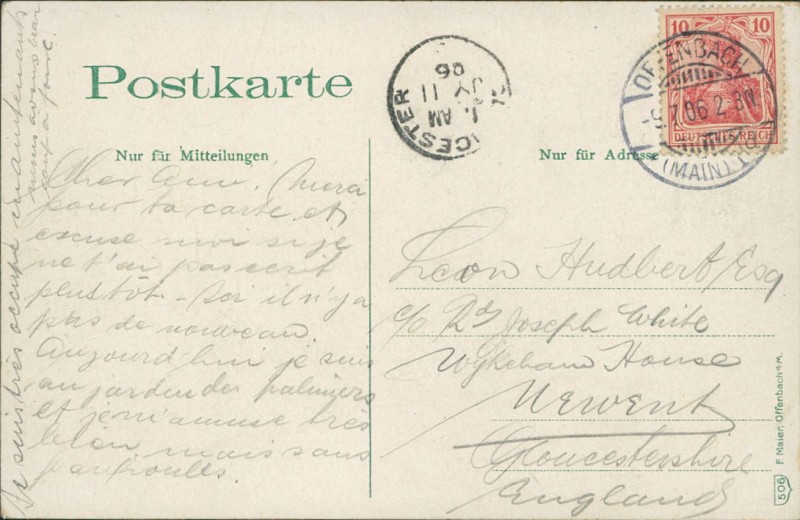 Postkarte
Nur für Mitteilungen
Nur für Adresse
Cher Ami, Merci
pour ta carte et
excuse moi si je
ne t'ai pas ecrit
plustot - Ici il n'y a
pas de nouveau.
Aujourd'hui je suis
au jardin des palmiers
et je m'amuse très
bien mais sans
Je suis très occupé maintenant
mais
tout à
Leon Hudbert Esq
c/o Joseph White
Wykeham House
Newent
Gloucestershire
England
10 10
DEUTSCHES REICH
OFFENBACH
06 2-3N.
(MAIN)
CESTER
AM
JY 11
06
F. Maier, Offenbach a. M.
506